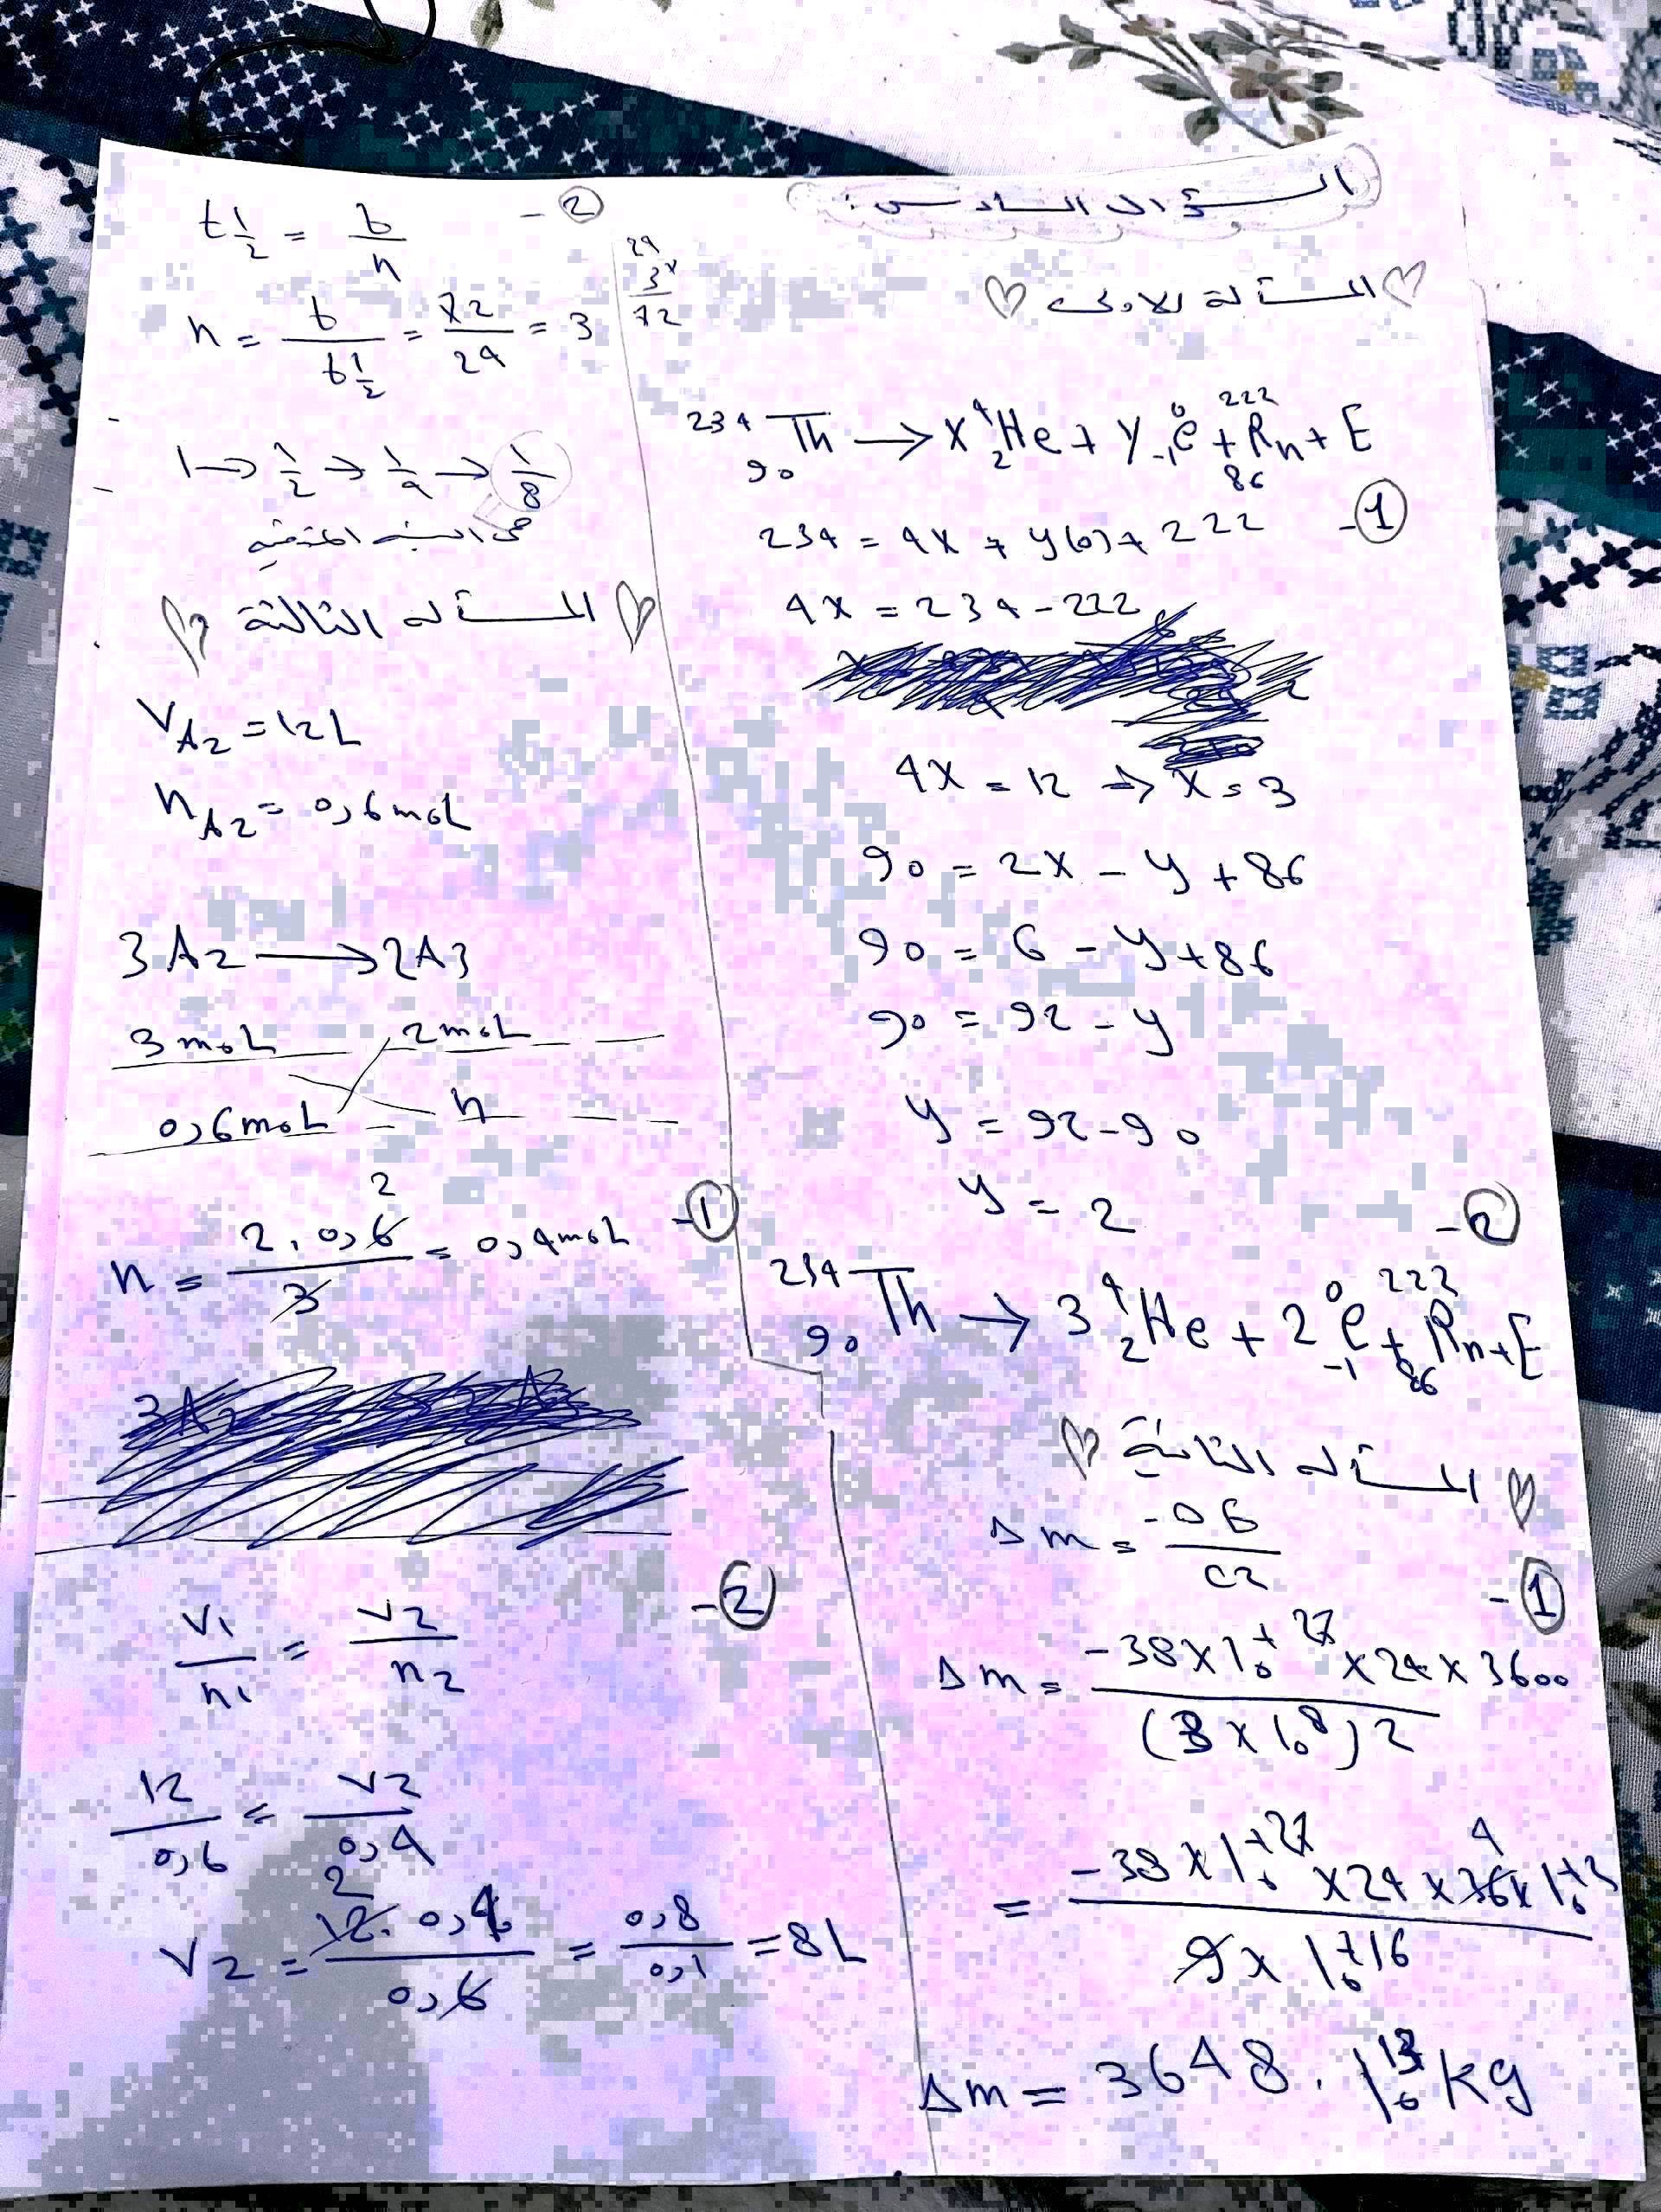 السؤال السادس:
المسألة الاولى
²³⁴₉₀Th → X ⁴₂He + Y ⁰₋₁e + ²²²₈₆Rn + E
1 -
234 = 4X + y(0) + 222
4X = 234 - 222
4X = 12 ⇒ X = 3
90 = 2X - y + 86
90 = 6 - y + 86
90 = 92 - y
y = 92 - 90
y = 2
2 -
²³⁴₉₀Th → 3 ⁴₂He + 2 ⁰₋₁e + ²²²₈₆Rn + E
المسألة الثانية
Δm = -ΔE / c2
1 -
Δm = -38 x 10⁺²⁷ x 24 x 3600 / (3 x 10⁸)2
= -38 x 10⁺²⁷ x 24 x 36 x 10⁺³ / 9 x 10⁺¹⁶
4
Δm = 3648 . 10¹³ kg
2 -
t½ = t / n
n = t / t½ = 72 / 24 = 3
24
3x
72
1 → 1/2 → 1/4 → 1/8
المسألة الثالثة
VA2 = 12L
nA2 = 0,6 moL
3A2 → 2A3
3 moL 2 moL
0,6 moL n
1 -
n = 2 . 0,6 / 3 = 0,4 moL
2
2 -
V1 / n1 = V2 / n2
12 / 0,6 = V2 / 0,4
V2 = 12 . 0,4 / 0,6 = 0,8 / 0,1 = 8L
2